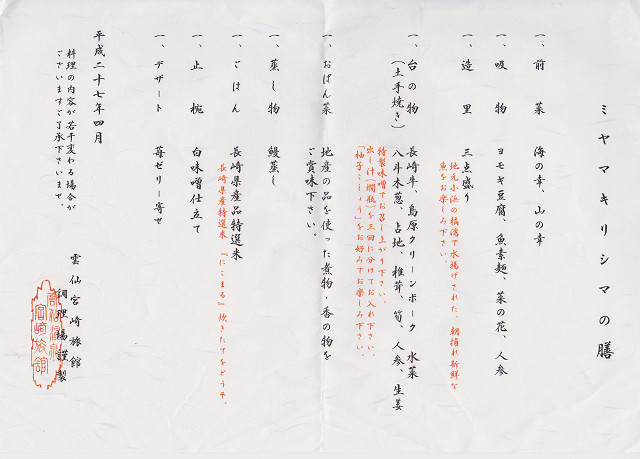 ミヤマキリシマの膳
一、前菜　海の幸、山の幸
一、吸物　ヨモギ豆腐、魚素麺、菜の花、人参
一、造里　三点盛り
地元小浜の橘湾で水揚げされた、朝捕れ新鮮な
魚をお楽しみ下さい。
一、台の物　長崎牛、島原クリーンポーク　水菜
（土手焼き）　八斗木葱、占地、椎茸、筍、人参、生姜
特製味噌でお召し上がり下さい。
出し汁（燗瓶）を三回に分けてお入れ下さい。
「柚子こしょう」をお好みでお楽しみ下さい。
一、おばん菜　地産の品を使った煮物・香の物を
ご賞味下さい。
一、蒸し物　鰻蒸し
一、ごはん　長崎県産品特選米
長崎県産特選米『にこまる』炊きたてをどうぞ。
一、止椀　白味噌仕立て
一、デザート　苺ゼリー寄せ
平成二十七年四月
料理の内容が若干変わる場合が
ございますご了承下さいませ。
雲仙宮崎旅館
調理場謹製
雲仙温泉
宮崎旅館